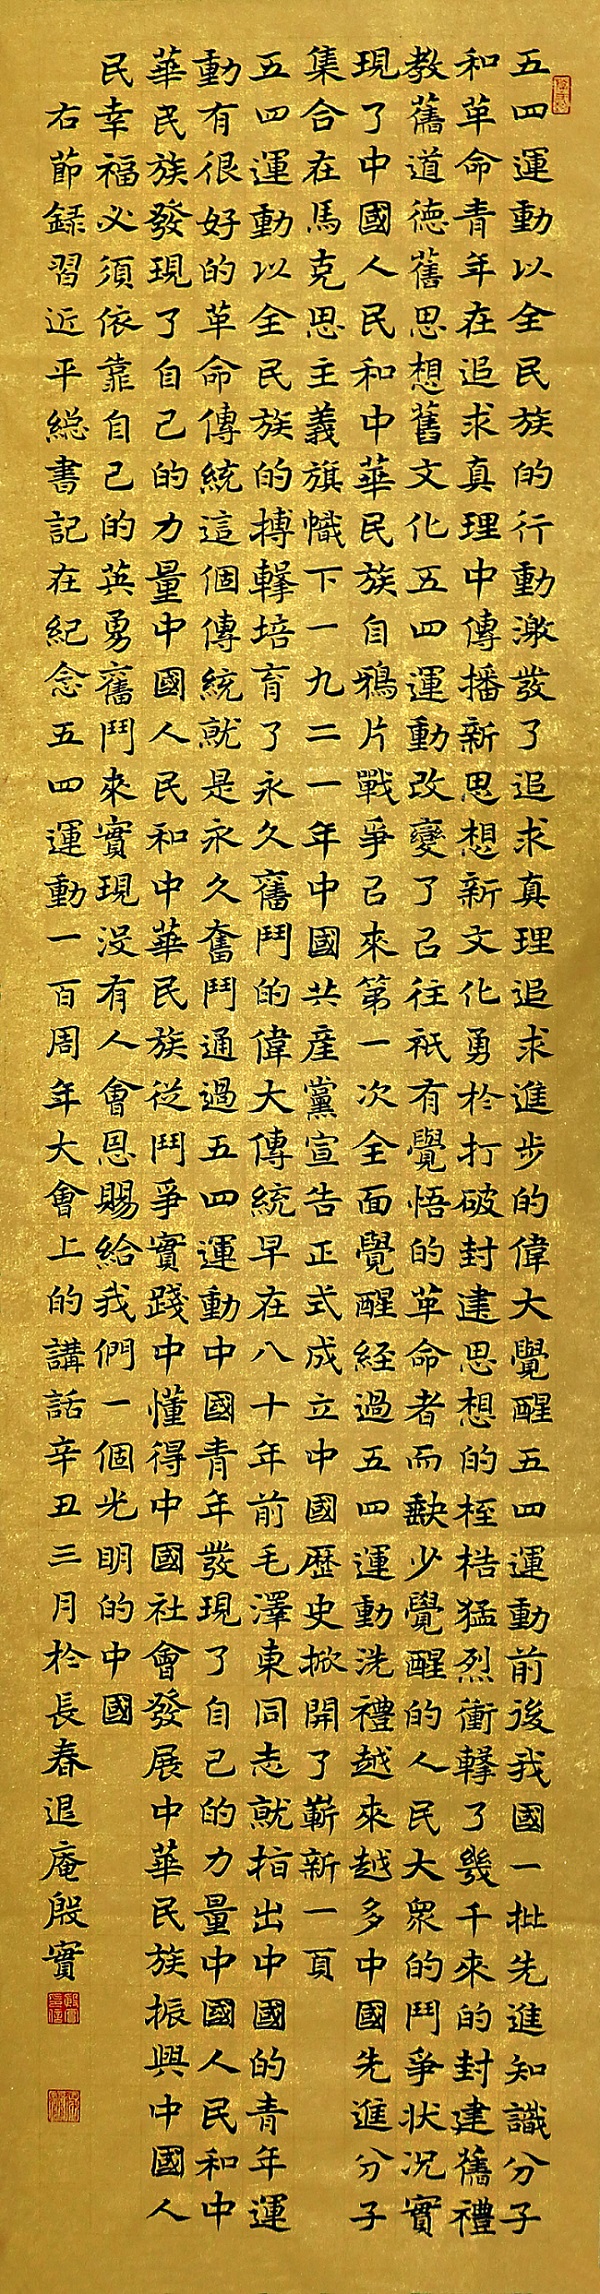 五四運動以全民族的行動激發了追求真理追求進步的偉大覺醒五四運動前後我國一批先進知識分子
和革命青年在追求真理中傳播新思想新文化勇於打破封建思想的桎梏猛烈衝擊了幾千來的封建舊禮
教舊道德舊思想舊文化五四運動改變了己往衹有覺悟的革命者而缺少覺醒的人民大衆的鬥爭狀況實
現了中國人民和中華民族自鴉片戰爭己來第一次全面覺醒經過五四運動洗禮越來越多中國先進分子
集合在馬克思主義旗幟下一九二一年中國共產黨宣告正式成立中國歷史掀開了嶄新一頁
五四運動以全民族的搏擊培育了永久奮鬥的偉大傳統早在八十年前毛澤東同志就指出中國的青年運
動有很好的革命傳統這個傳統就是永久奮鬥通過五四運動中國青年發現了自己的力量中國人民和中
華民族發現了自己的力量中國人民和中華民族從鬥爭實踐中懂得中國社會發展中華民族振興中國人
民幸福必須依靠自己的英勇奮鬥來實現没有人會恩賜給我們一個光明的中國
右節録習近平總書記在紀念五四運動一百周年大會上的講話辛丑三月於長春退庵殷實